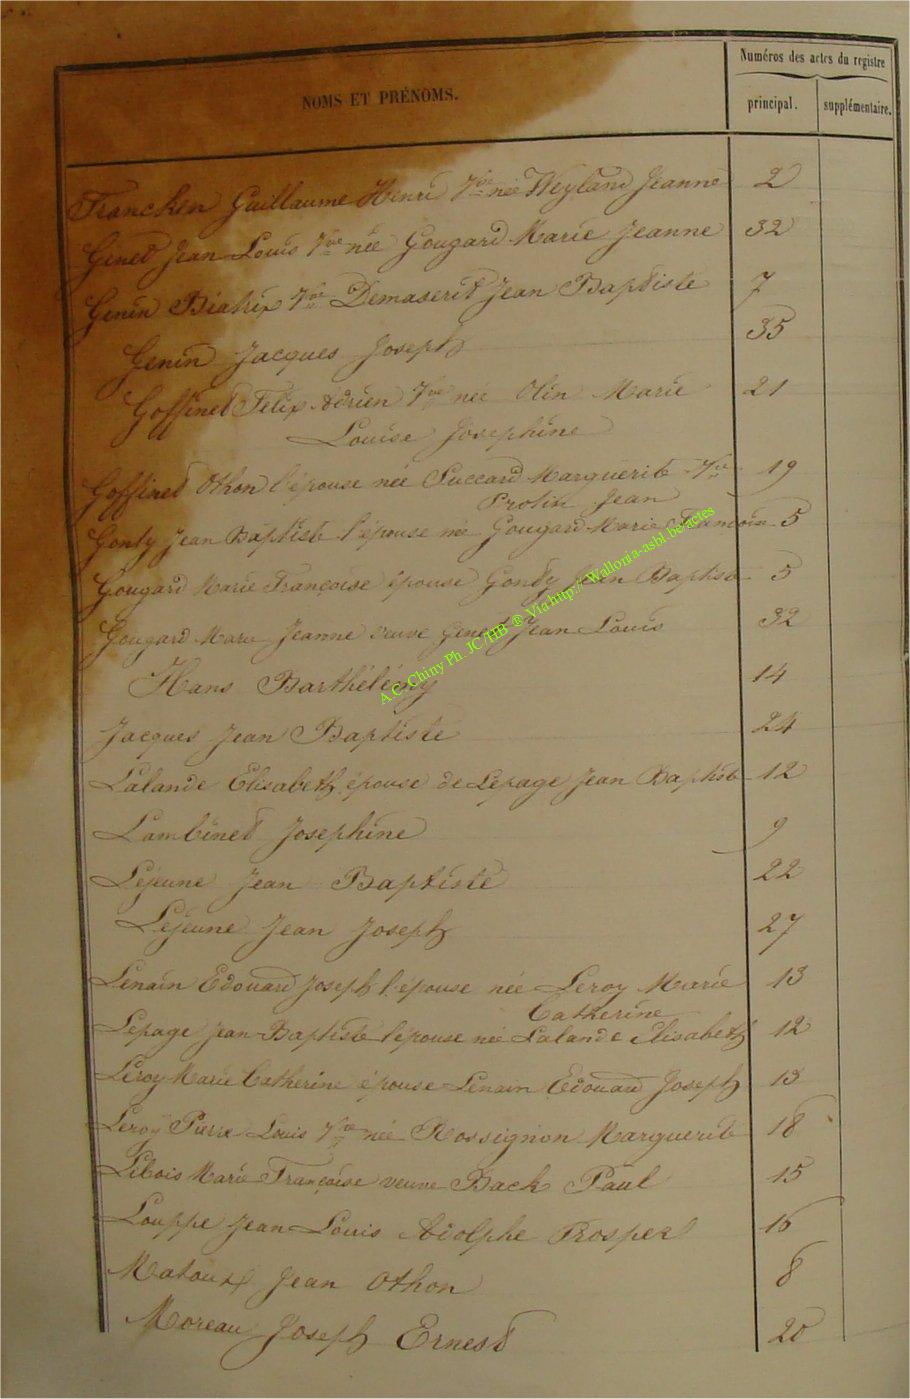 Numéros des actes du registre
NOMS ET PRÉNOMS.
principal. supplémentaire.
Francken Guillaume Henri Vve née Weyland Jeanne 2
Genet Jean Louis Vve née Gougard Marie Jeanne 32
Genin Béatrix Vve Demaseret Jean Baptiste 7
Genin Jacques Joseph 35
Goffinet Félix Adrien Vve née Olin Marie 21
Louise Joséphine
Goffinet Othon l'épouse née Succard Marguerite Vve 19
Protin Jean
Gondy Jean Baptiste l'épouse née Gougard Marie Françoise 5
Gougard Marie Françoise épouse Gondy Jean Baptiste 5
Gougard Marie Jeanne veuve Genet Jean Louis 32
Hans Barthélémy 14
Jacques Jean Baptiste 24
Lalande Elisabeth épouse de Lepage Jean Baptiste 12
Lambinet Josephine 9
Lejeune Jean Baptiste 22
Lejeune Jean Joseph 27
Lenain Edouard Joseph l'épouse née Leroy Marie 13
Catherine
Lepage Jean Baptiste l'épouse née Lalande Elisabeth 12
Leroy Marie Catherine épouse Lenain Edouard Joseph 13
Leroy Pierre Louis Vve née Rossignon Marguerite 18
Libois Marie Françoise veuve Back Paul 15
Louppe Jean Louis Adolphe Prosper 16
Matoux Jean Othon 8
Moreau Joseph Ernest 20
A.C. Chiny Ph. JC/HB ® Via http://Wallonia-asbl.be/actes